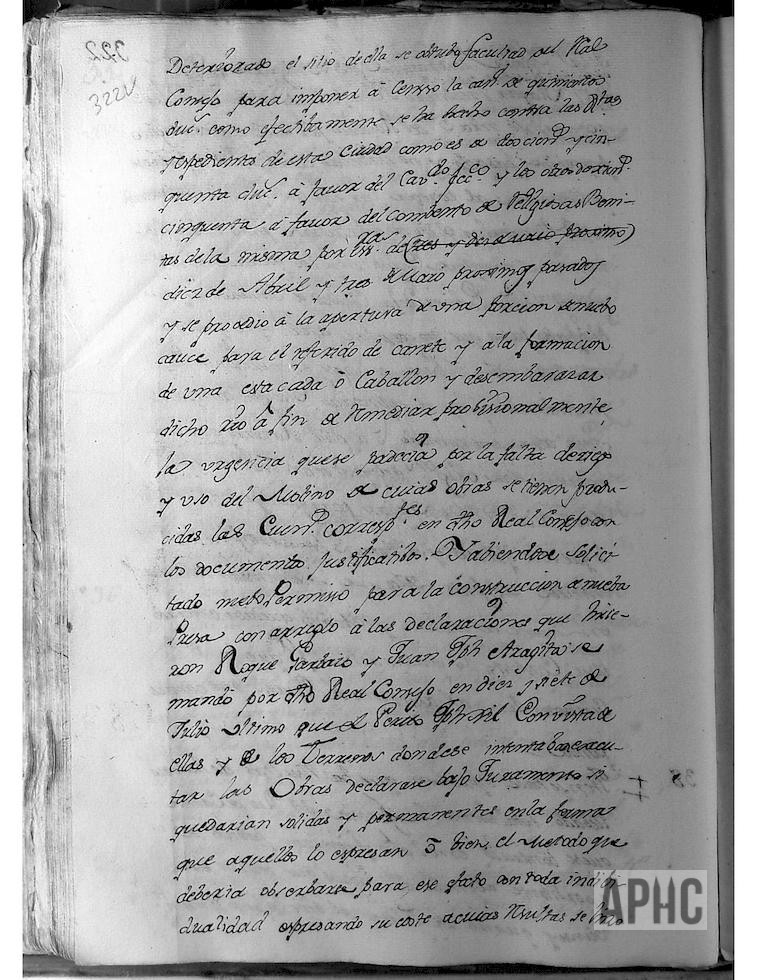 322
322V
Deteriorado el sitio de ella se obtubo facultad del Real
Consejo para imponer á Censso la cant.d de quinientos
duc.s como efectibamente se ha hecho contra las R.tas
y expedientes de esta Ciudad como es de doocien.s y cin-
quenta duc.s á favor del Cav.do Ecc.co y los otros docien.s
cinquenta á favor del combento de Religiosas Beni-
tas de la misma por ess.ras de (tres y diez de marzo proximo)
diez de Abril y tres de Marzo proximos pasados
y se procedio á la apertura de una porcion de nuebo
cauce para el referido de canete y á la formacion
de una estacada ó Caballon y desembarazar
dicho Rio á fin de Remediar probisionalmente
la urgencia que se padecia por la falta de riego
y uso del Molino de cuias obras se tienen produ-
cidas las Cuen.s corresp.tes en dho Real Consejo con
los documentos justificatibos. Y abiendose solici-
tado nuebo Permisso para la construccion de nueba
Presa con arreglo á las declaraciones que hicie-
ron Roque y Juan Jph Aragita se
mandó por dho Real Consejo en diez y siete de
Julio ultimo que el Perito Jph Gil Con vista de
ellas y de los Terrenos donde se intentaba execu-
tar las Obras declarase bajo Juramento si
quedarian solidas y permanentes en la forma
que aquellos lo espresan ó bien el Metodo que
deberia observarse para ese efecto con toda indibi-
dualidad espresando su coste a cuias Resultas se hizo
APHC